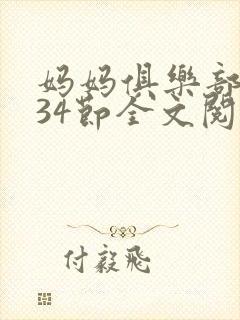 妈妈俱樂部
34節全文閱
付毅飛